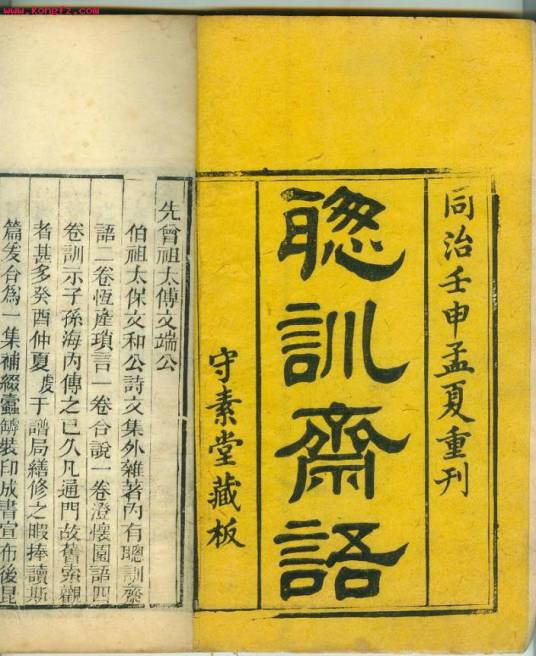 www.kongfz.com
同治壬申孟夏重刊
聰訓齋語
守素堂藏板
先曾祖太傅文端公
伯祖太保文和公詩文集外雜著內有聰訓齋
語二卷恆產瑣言一卷合說一卷澄懷園語四
卷訓示子孫海內傳之已久凡通門故舊索觀
者甚多癸酉仲夏虔于譜局繕修之暇捧讀斯
篇爰合爲一集補綴蠹簡裝印成書宣布後昆